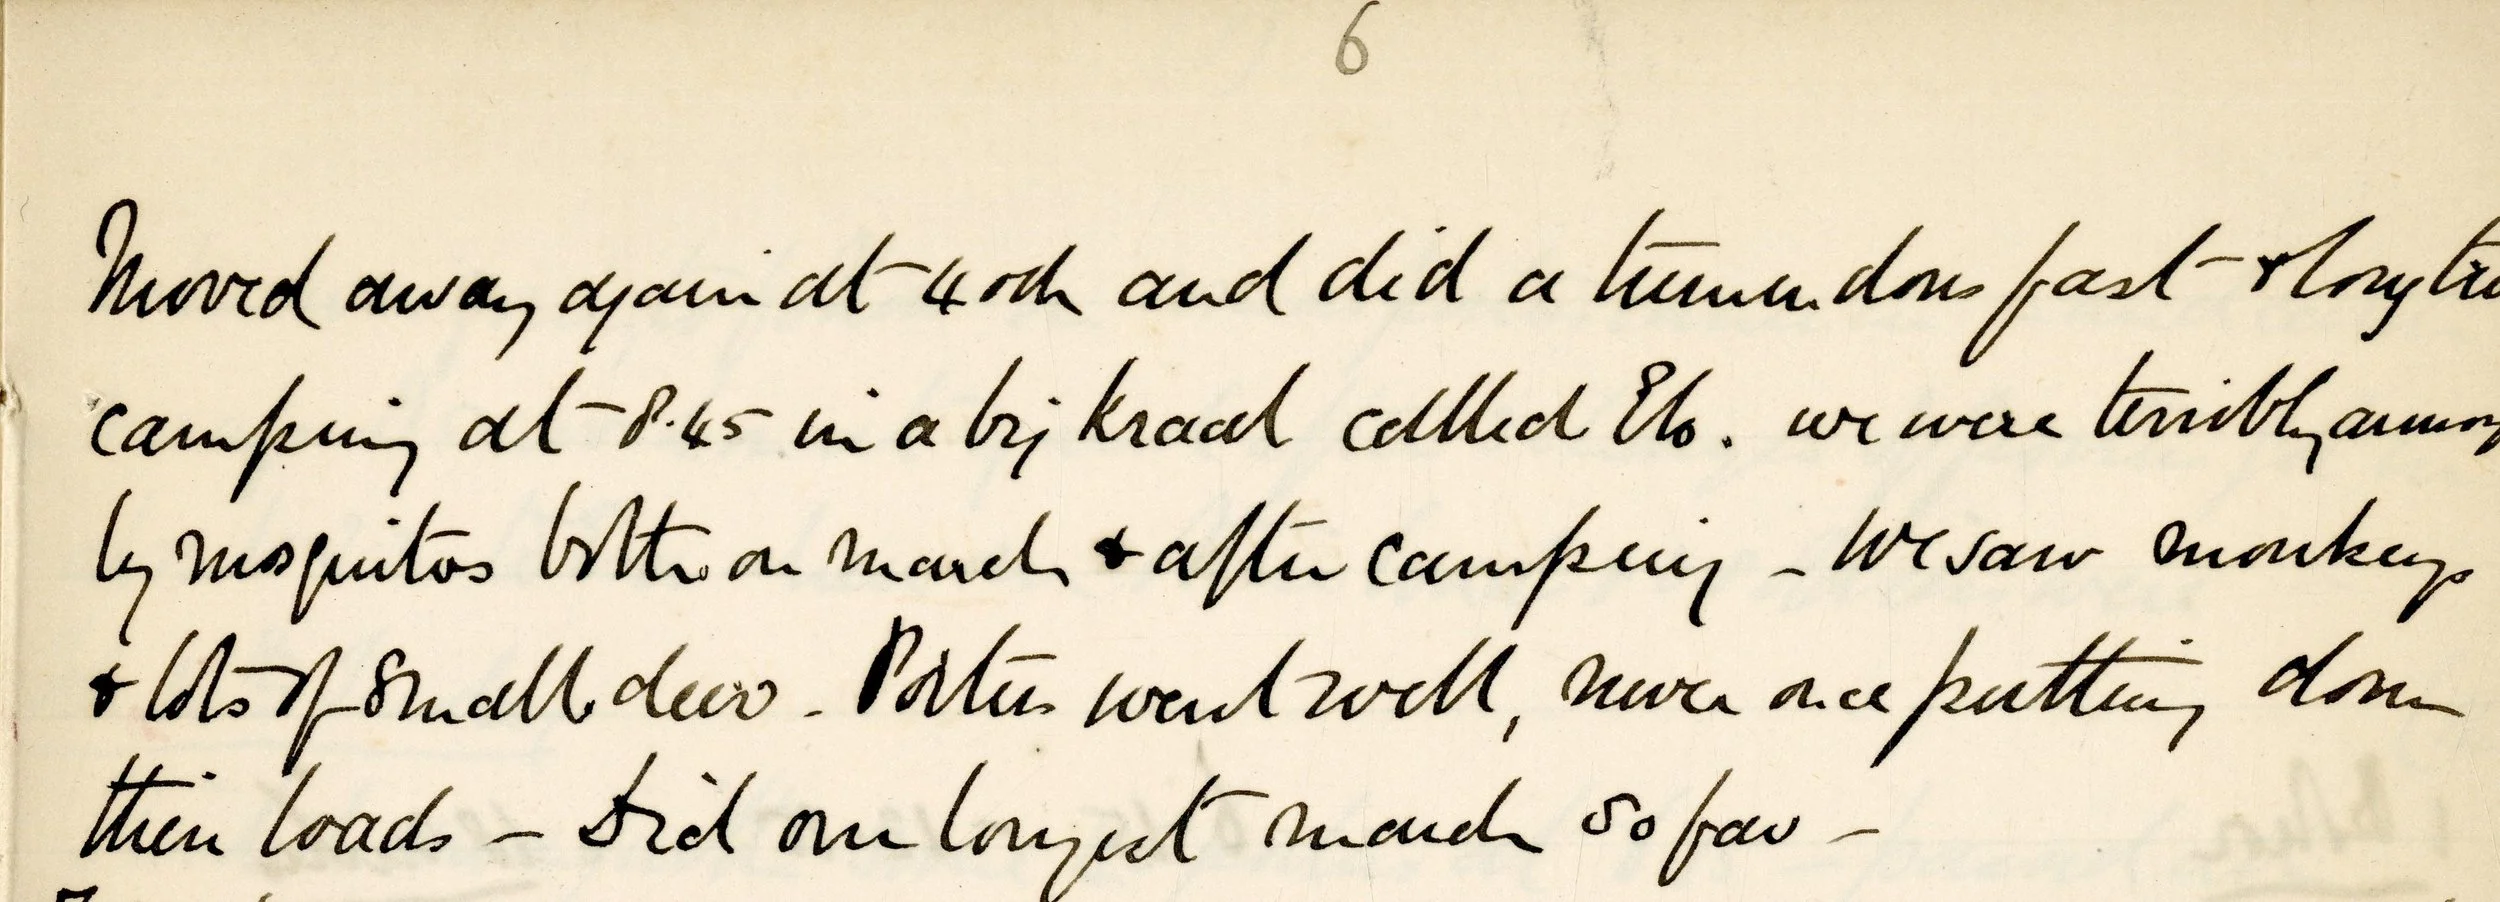 6
Moved away again at 4 och and did a tremendous fast & long
camping at 8.45 in a big Kraal called Elo. we were terribly
by mosquitos both on march & after camping – We saw monkeys
& lots of small deer – Porters went well, never once putting down
their loads – Did our longest march so far –